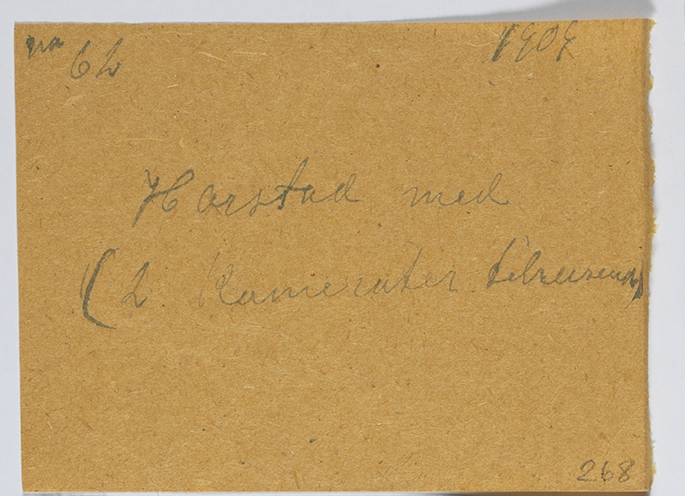 no 62 1909
Harstad med
(2 Kamerater tilreisende)
268